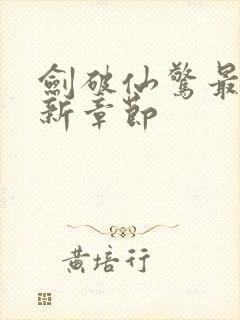 劍破仙驚最
新章節
黃培行